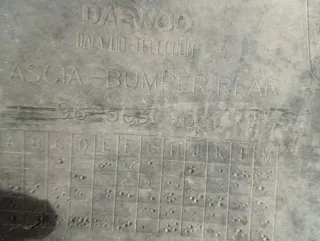 DAEWOO
DAEWOO TELECOM
ASCIA - BUMPER REAR
96
A B C D E F G H J K L M